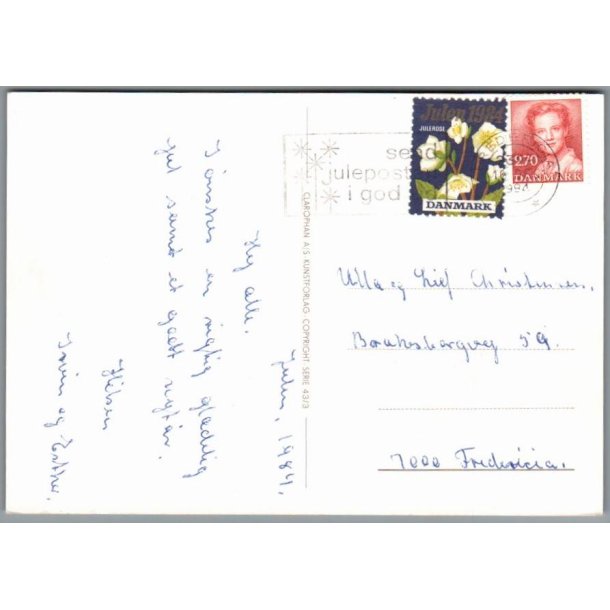 Julen, 1984.
Hej alle.
I ønskes en rigtig glædelig
jul samt et godt nytår.
Hilsen
og Esther.
CLAROPHAN A/S KUNSTFORLAG COPYRIGHT SERIE 43/3
send
julepost
i god
Julen 1984
JULEROSE
DANMARK
2.70
DANMARK
Ulla og Leif Christensen.
59.
7000 Fredericia.